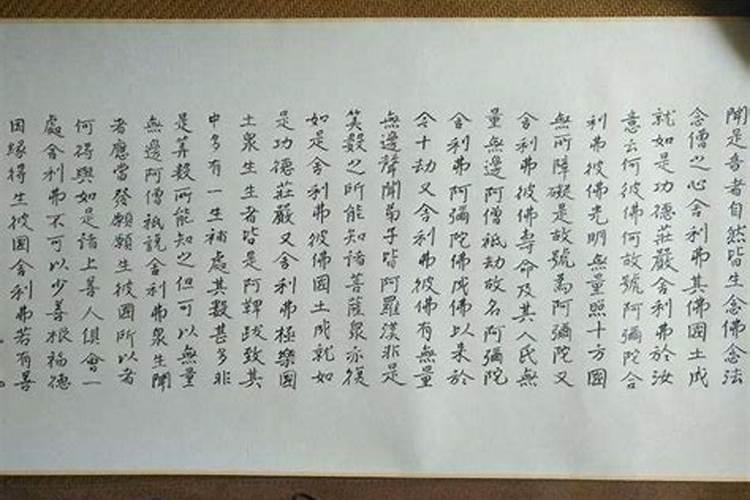 聞是音者自然皆生念佛念法
念僧之心舍利弗其佛國土成
就如是功德莊嚴舍利弗於汝
意云何彼佛何故號阿彌陀舍
利弗彼佛光明無量照十方國
無所障礙是故號為阿彌陀又
舍利弗彼佛壽命及其人民無
量無邊阿僧祇劫故名阿彌陀
舍利弗阿彌陀佛成佛以來於
今十劫又舍利弗彼佛有無量
無邊聲聞弟子皆阿羅漢非是
筭數之所能知諸菩薩眾亦復
如是舍利弗彼佛國土成就如
是功德莊嚴又舍利弗極樂國
土眾生生者皆是阿鞞跋致其
中多有一生補處其數甚多非
是筭數所能知之但可以無量
無邊阿僧祇說舍利弗眾生聞
者應當發願願生彼國所以者
何得與如是諸上善人俱會一
處舍利弗不可以少善根福德
因緣得生彼國舍利弗若有善